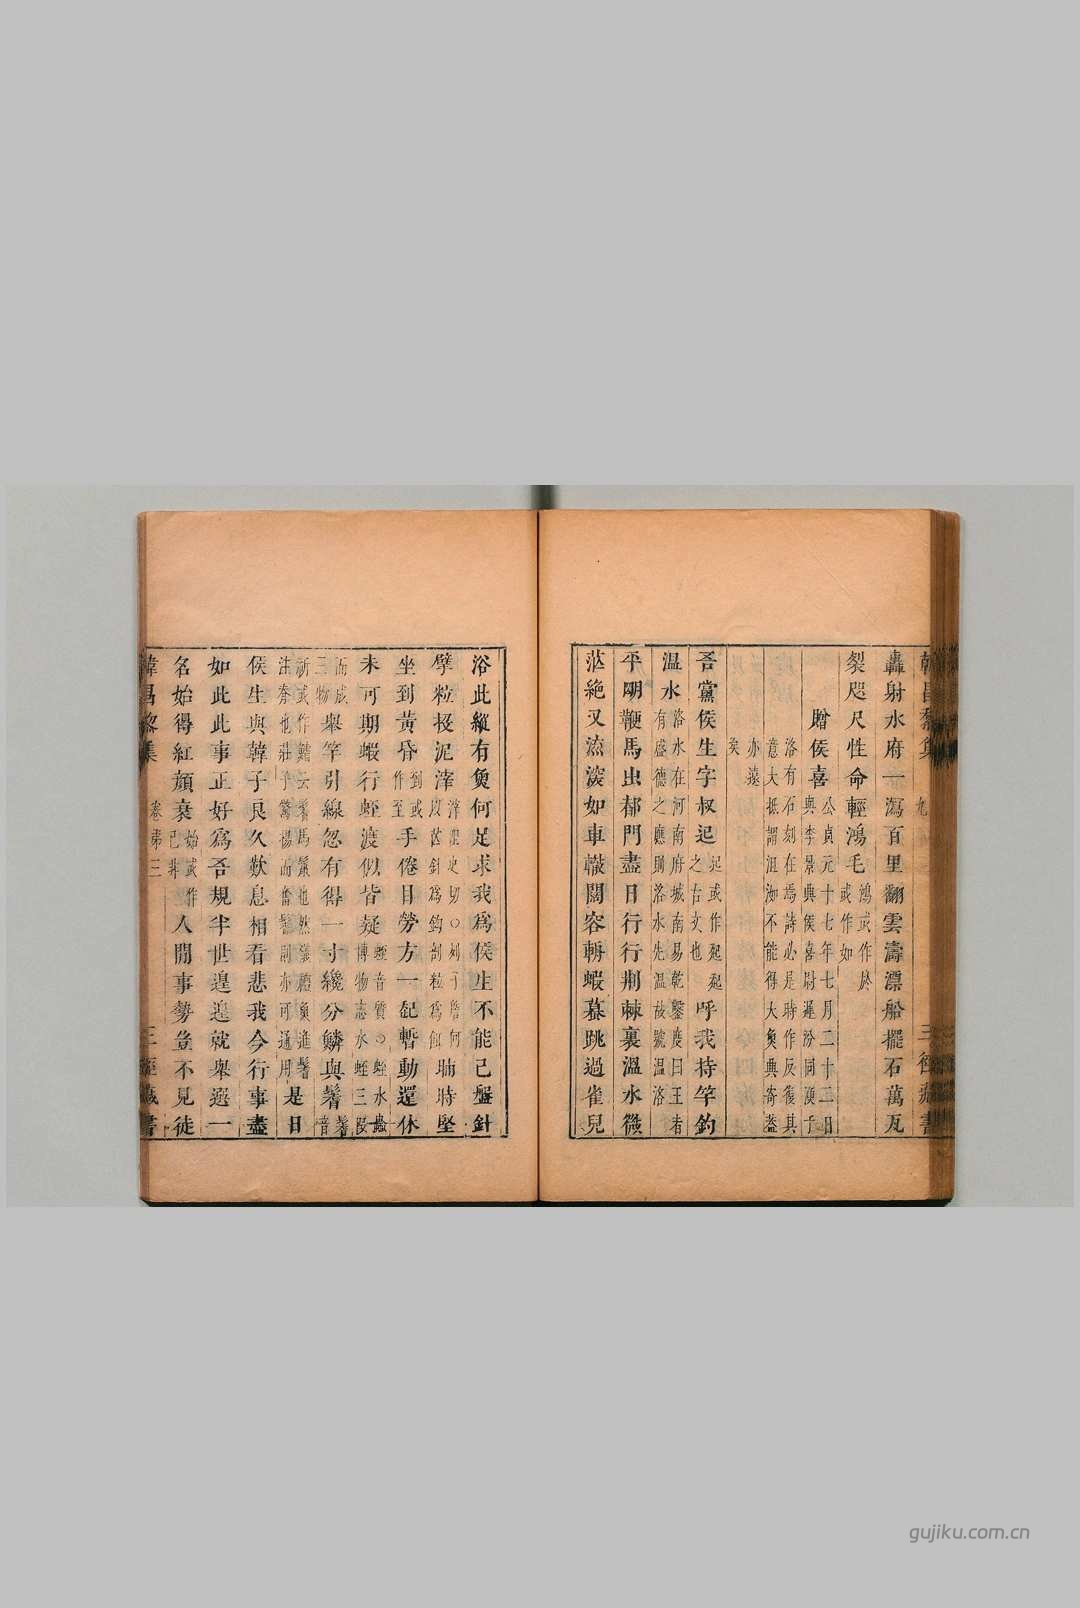 轟射水府一瀉百里翻雲濤漂船擺石萬瓦
裂咫尺性命輕鴻毛鴻或作於或作如
贈侯喜公貞元十七年七月二十二日與李景興侯喜尉遲汾同漁于
洛有石刻在焉詩必是時作反復其意大抵謂沮洳不能得大魚與寄蓋
亦遠矣
吾黨侯生字叔起起或作起起之古文也呼我持竿釣
溫水洛水在河南府城南易乾鑿度曰王者有盛德之應則洛水先溫故號溫洛
平明鞭馬出都門盡日行行荆棘裏溫水微
茫絶又流深如車轍闊容輈蝦蟇跳過雀兒
浴此縱有魚何足求我爲侯生不能已盤針
擘粒投泥滓滓阻史切〇列子詹何以芒針爲鈎剖粒爲餌晡時堅
坐到黃昏到或作至手倦目勞方一起暫動還休
未可期蝦行蛭渡似皆疑蛭音質〇蛭水蟲博物志水蛭三段
而成三物舉竿引線忽有得一寸纔分鱗與鬐鬐音
祈或作鰭云鬐馬鬣也然儀禮魚進鬐注脊也莊子鶩揚而奮鬐則亦可通用是日
侯生與韓子良久歎息相看悲我今行事盡
如此此事正好爲吾規半世遑遑就舉選一
名始得紅顏衰始或作已非人間事勢豈不見徒
韓昌黎集 卷第三 三徑藏書